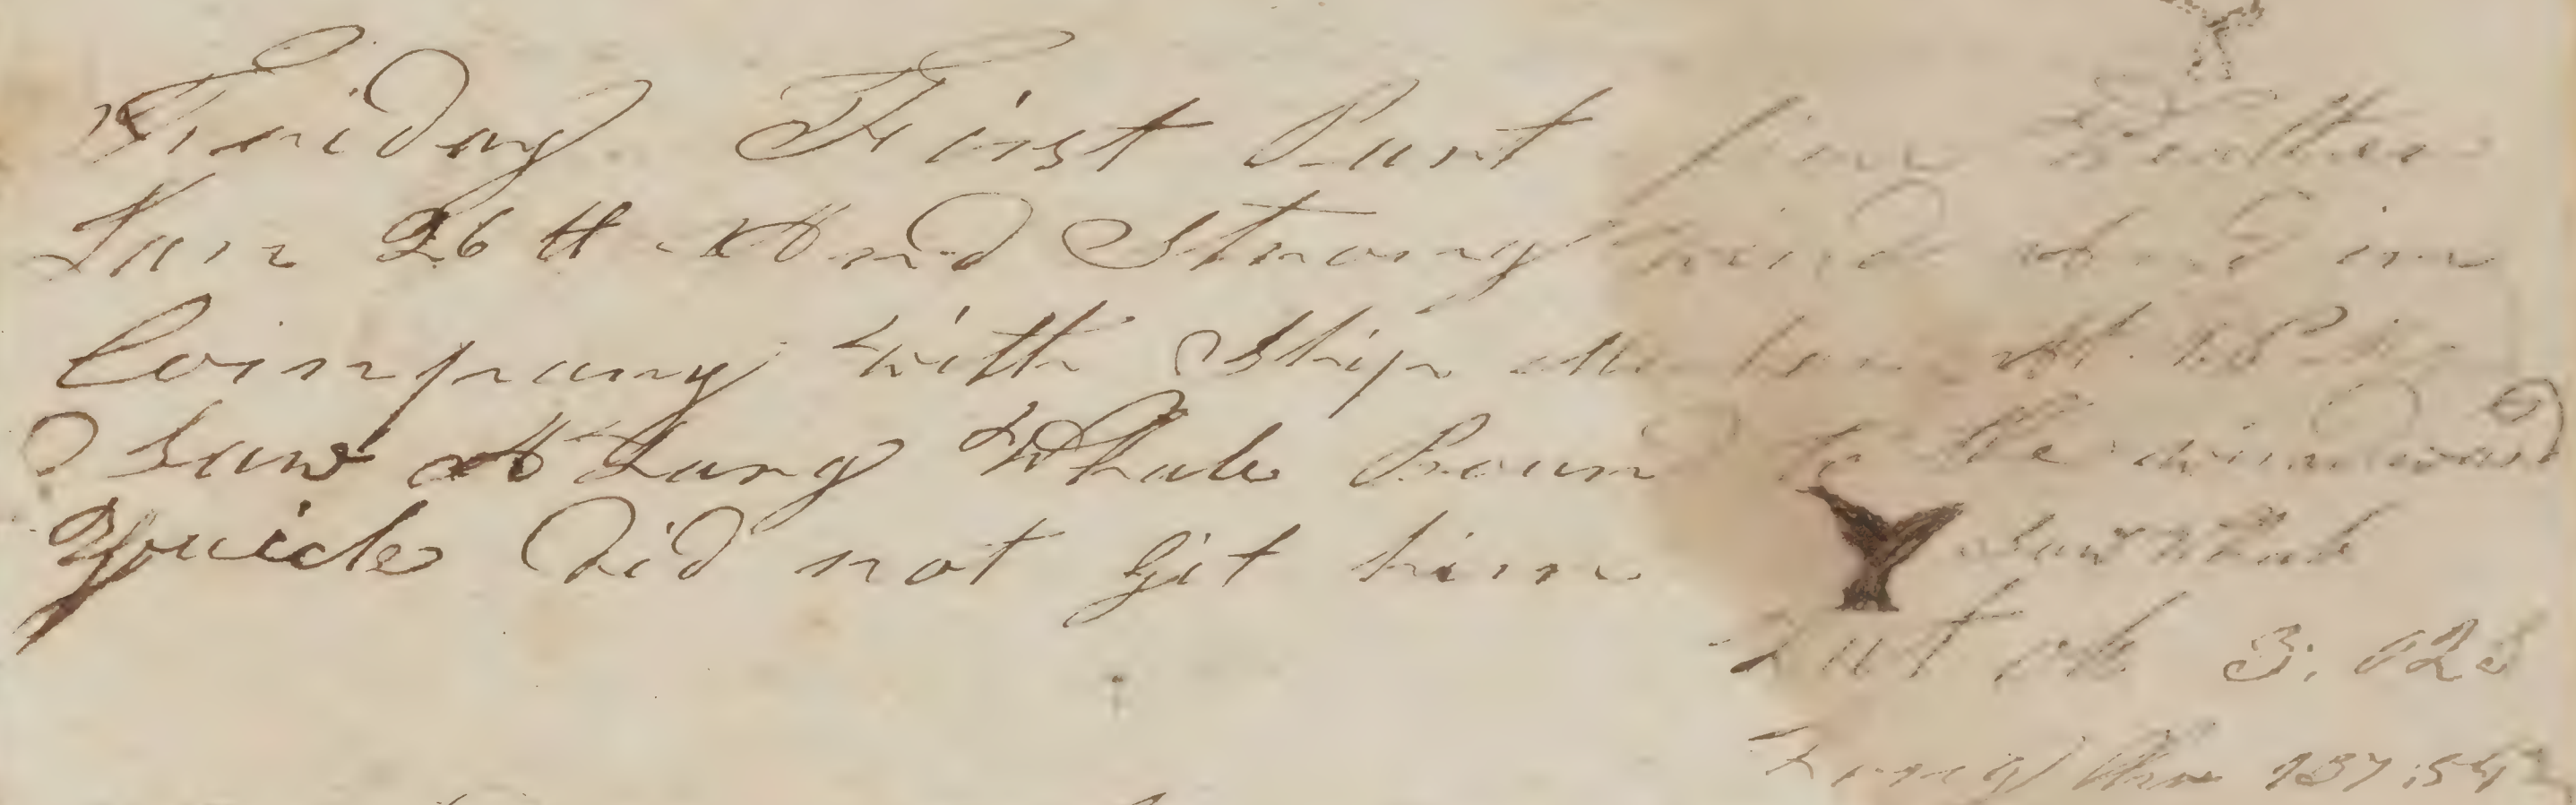 Friday First Part fine Weather
Jun 26th And Strong wind And in
Company with Ship at
Saw A Larg Whale Boun to the windward
Quick Did not git him Saw Whale
Lat by 3.02
Long Chro 137:54